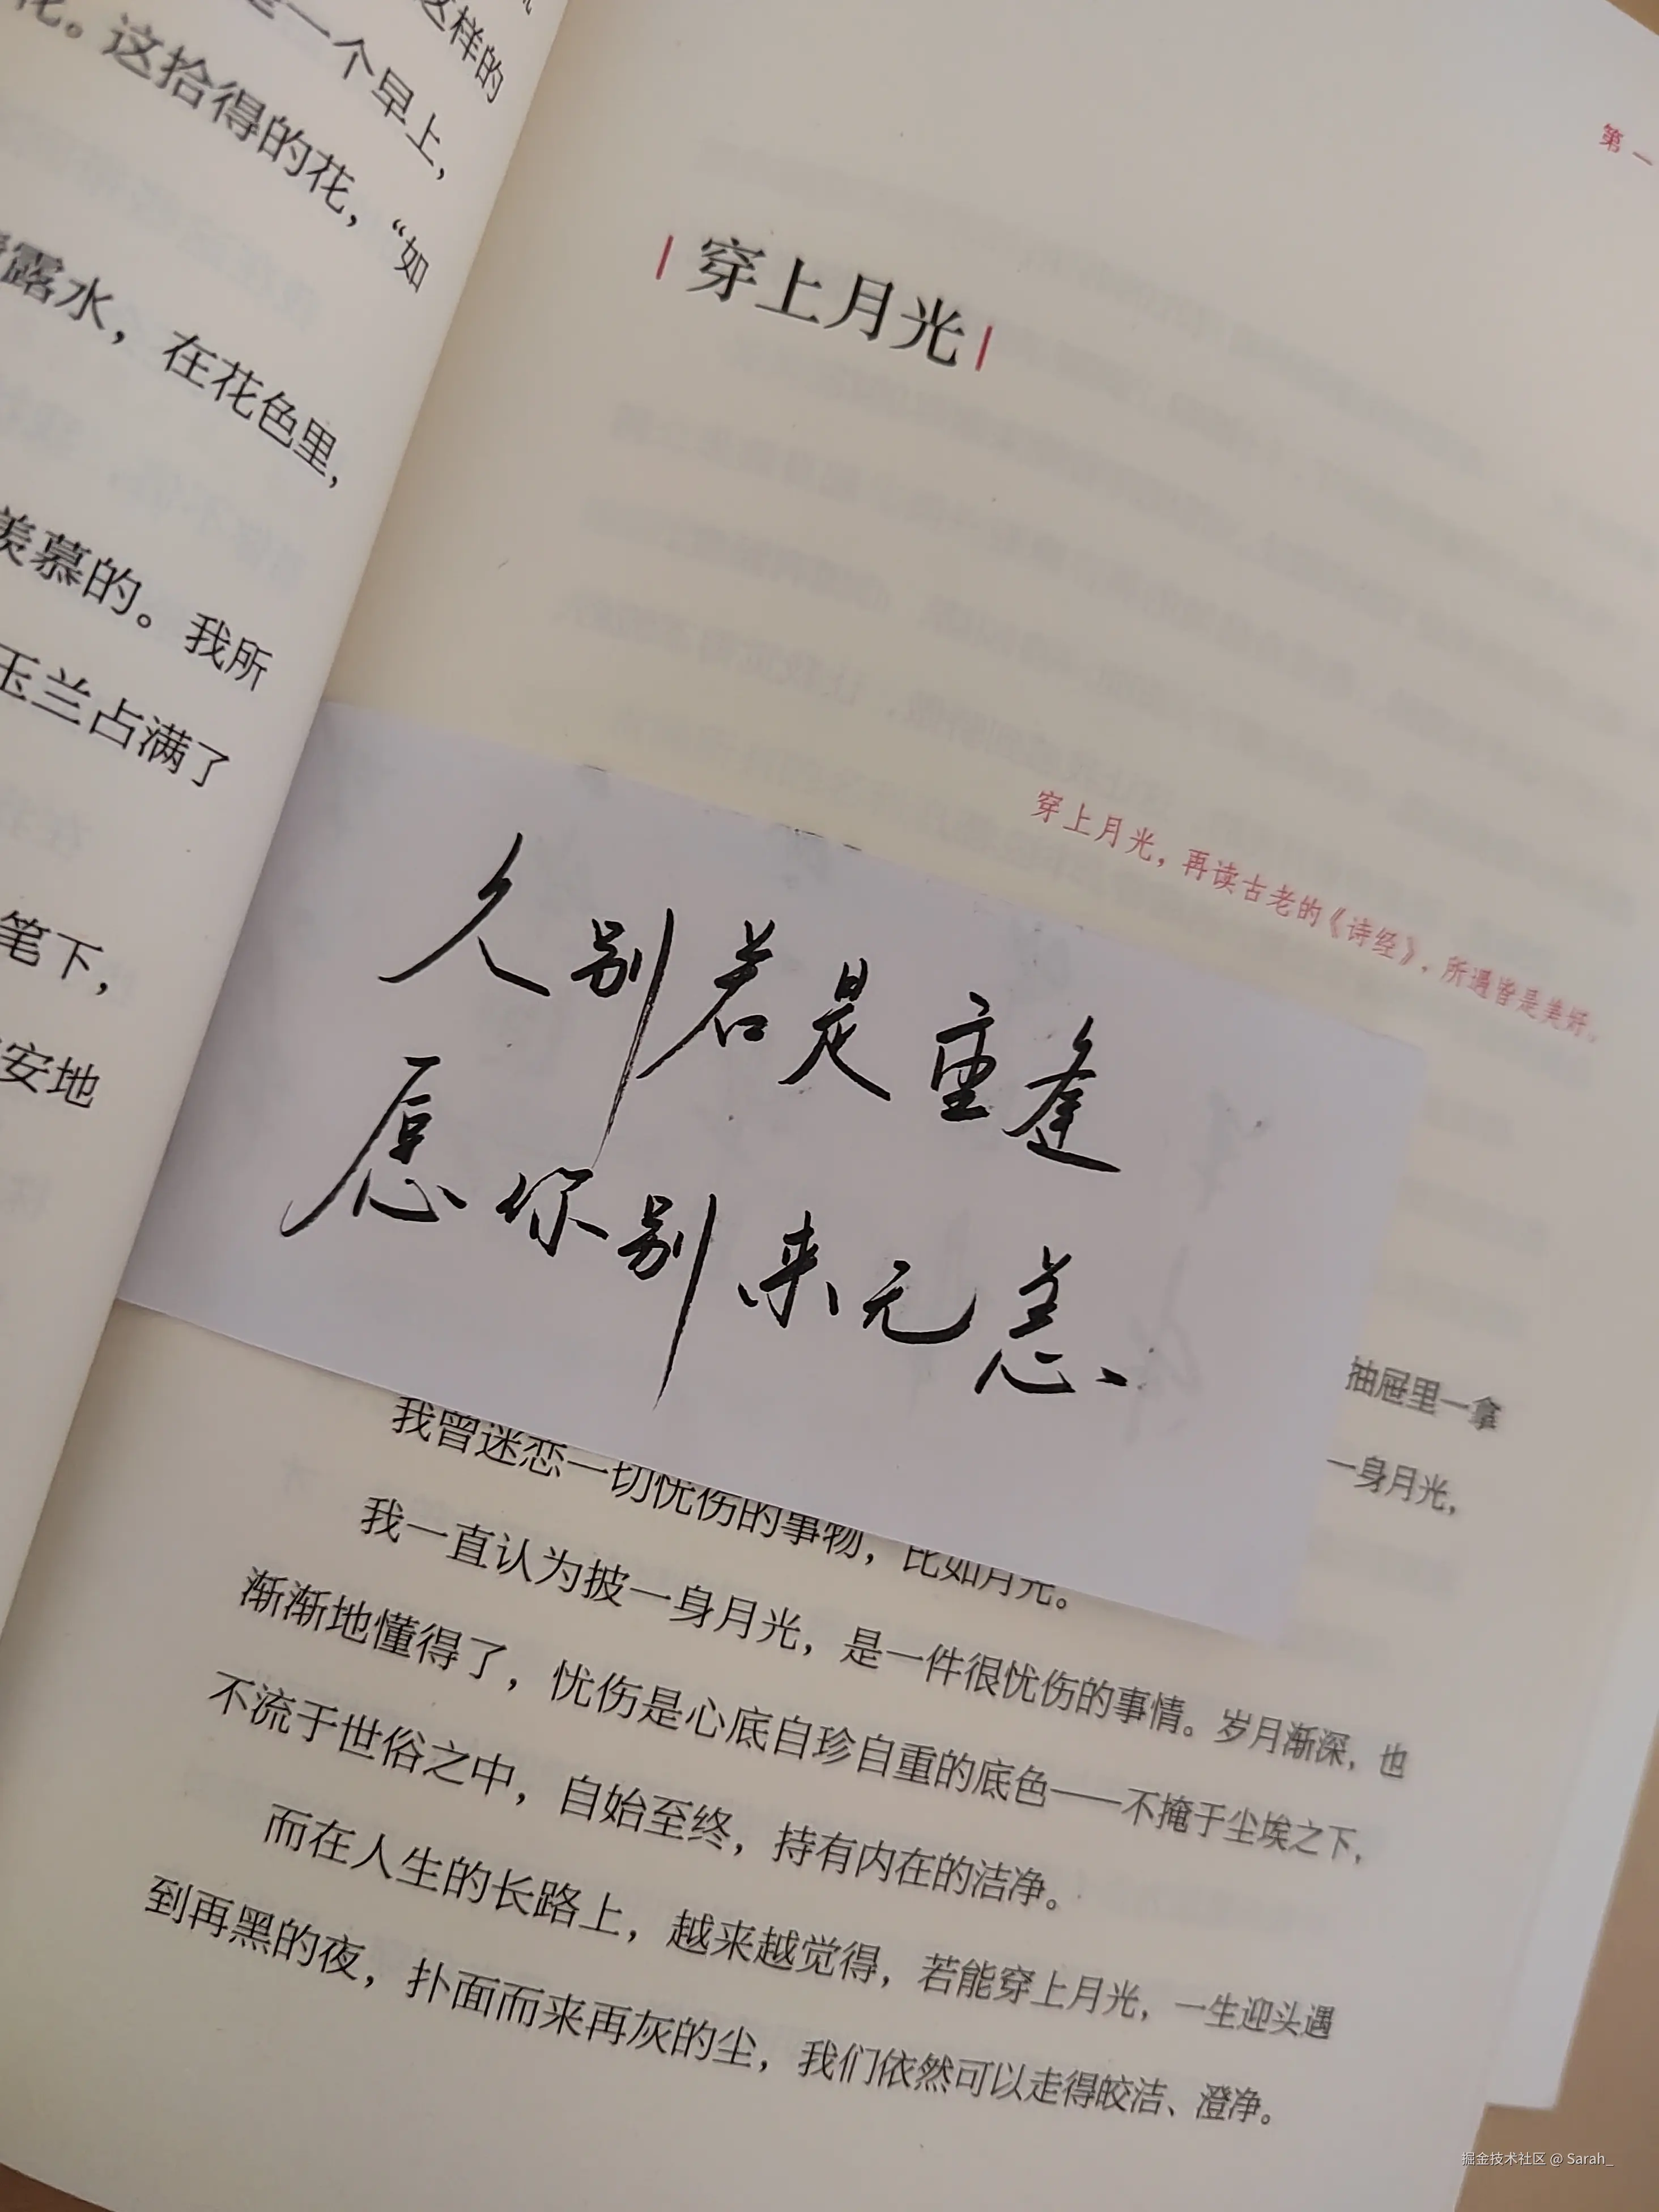 这样的
是一个早上，
花。这拾得的花，“如
露水，在花色里，
羡慕的。我所
玉兰占满了
笔下，
安地
第一
穿上月光
穿上月光，再读古老的《诗经》，所遇皆是美好。
久别若是重逢
愿你别来无恙
抽屉里一拿
一身月光，
我曾迷恋一切忧伤的事物，比如月光。
我一直认为披一身月光，是一件很忧伤的事情。岁月渐深，也
渐渐地懂得了，忧伤是心底自珍自重的底色——不掩于尘埃之下，
不流于世俗之中，自始至终，持有内在的洁净。
而在人生的长路上，越来越觉得，若能穿上月光，一生迎头遇
到再黑的夜，扑面而来再灰的尘，我们依然可以走得皎洁、澄净。
掘金技术社区 @ Sarah_